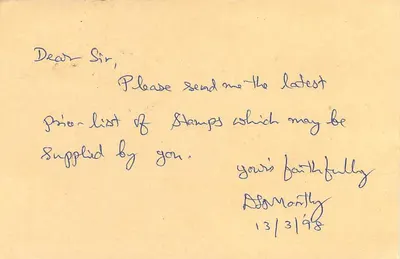 Dear Sir,
Please send me the latest
price-list of stamps which may be
supplied by you.
yours faithfully
13/3/'98